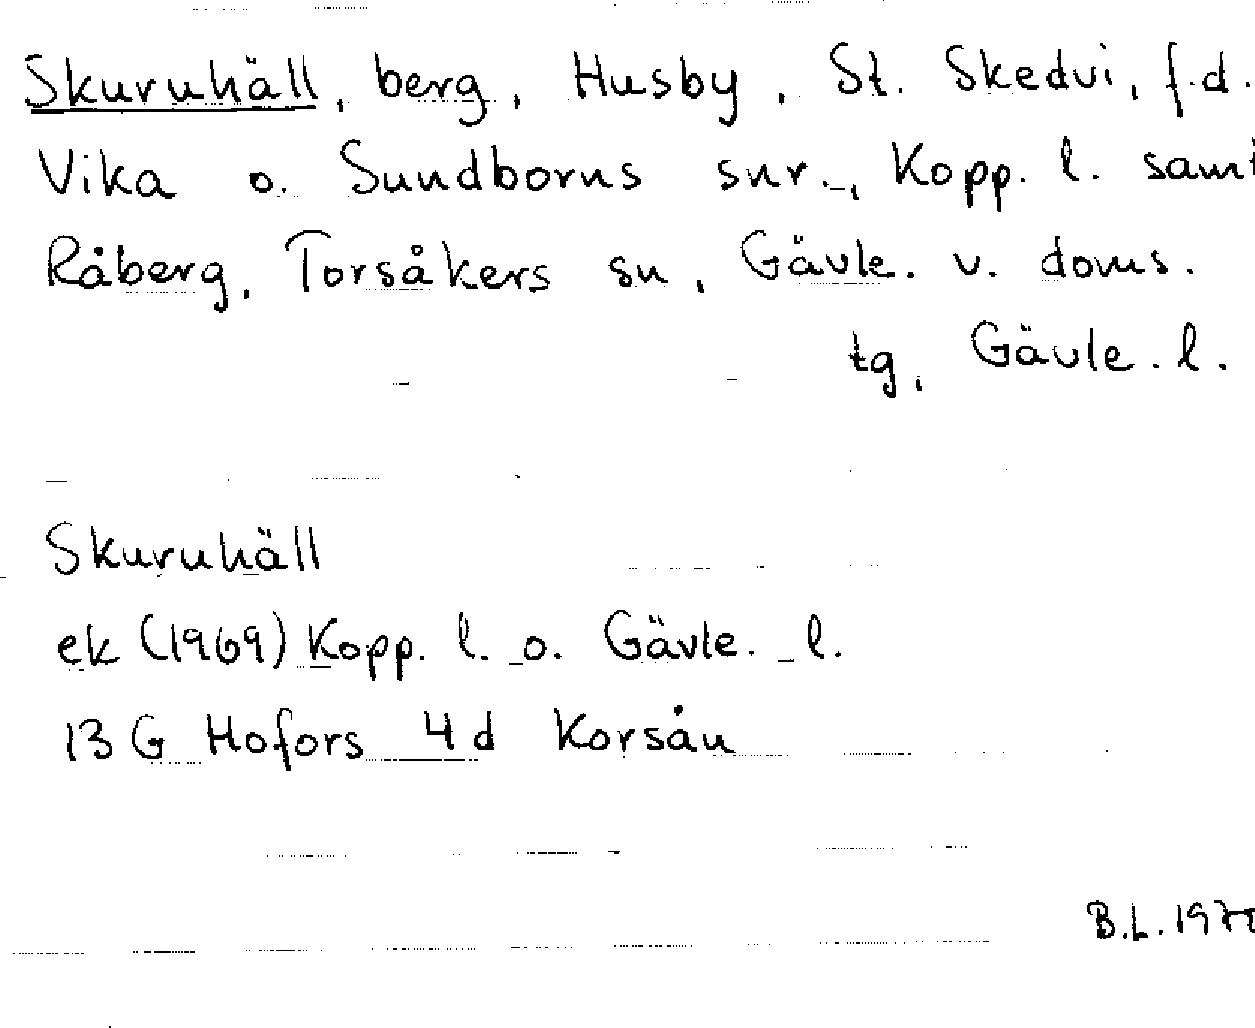 Skuruhäll, berg, Husby, St. Skedvi, f.d.
Vika o. Sundborns snr., Kopp. l. samt
Råberg, Torsåkers sn, Gävle. v. doms.
tg, Gävle. l.
Skuruhäll
ek (1969) Kopp. l. o. Gävle. l.
13 G Hofors 4 d Korsån
B.L.